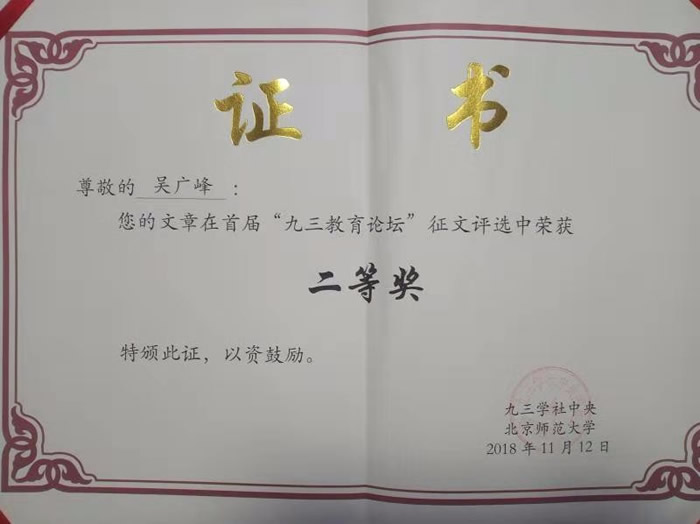 证书
尊敬的 吴广峰：
您的文章在首届“九三教育论坛”征文评选中荣获
二等奖
特颁此证，以资鼓励。
九三学社中央
北京师范大学
2018 年 11 月 12 日